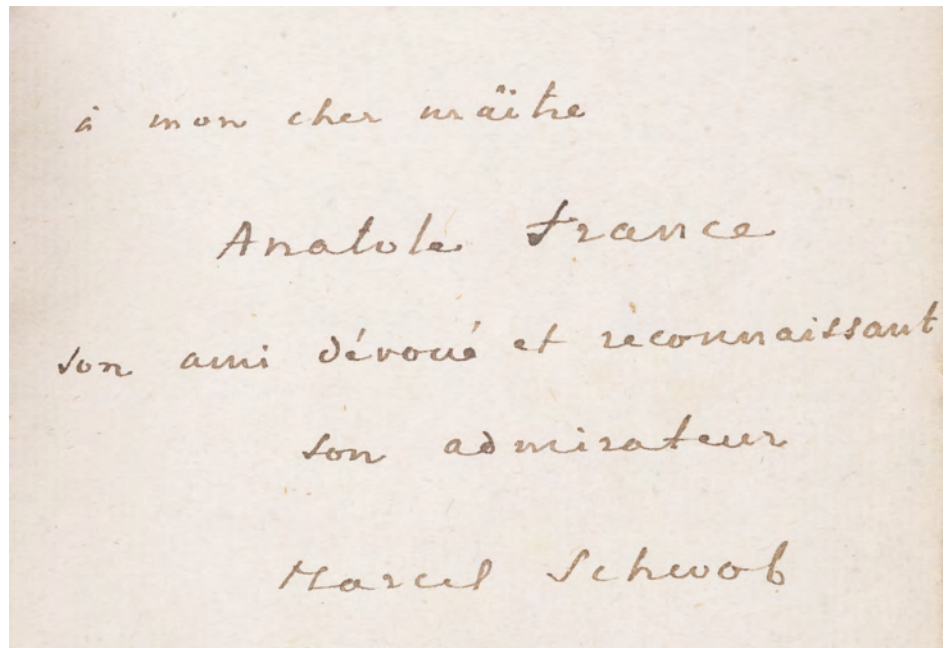 à mon cher maître
Anatole France
son ami dévoué et reconnaissant
son admirateur
Marcel Schwob